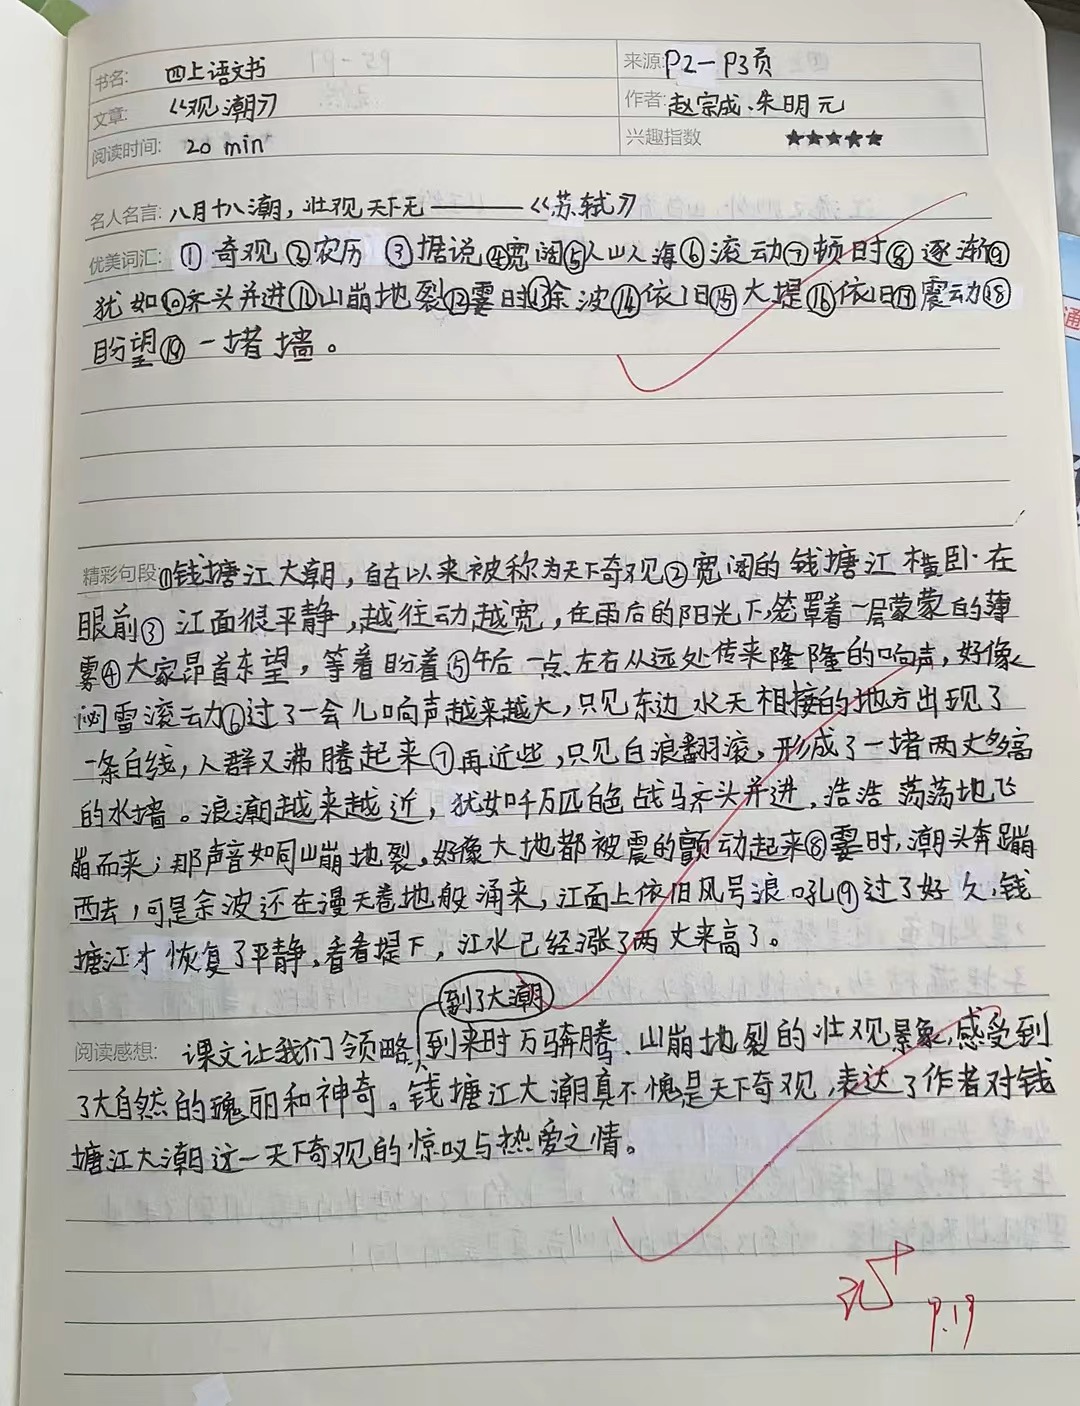 书名: 四上语文书
来源: P2-P3页
文章: 《观潮》
作者: 赵宗成、朱明元
阅读时间: 20 min
兴趣指数 ★★★★★
名人名言: 八月十八潮，壮观天下无————《苏轼》
优美词汇: ①奇观②农历 ③据说④宽阔⑤人山人海⑥滚动⑦顿时⑧逐渐⑨
犹如⑩齐头并进⑪山崩地裂⑫霎时⑬余波⑭依旧⑮大堤⑯依旧⑰震动⑱
盼望⑲一堵墙。
精彩句段: ①钱塘江大潮，自古以来被称为天下奇观②宽阔的钱塘江横卧在
眼前③江面很平静，越往动越宽，在雨后的阳光下，笼罩着一层蒙蒙的薄
雾④大家昂首东望，等着盼着⑤午后一点左右从远处传来隆隆的响声，好像
闷雪滚动⑥过了一会儿响声越来越大，只见东边水天相接的地方出现了
一条白线，人群又沸腾起来⑦再近些，只见白浪翻滚，形成了一堵两丈多高
的水墙。浪潮越来越近，犹如千万匹白色战马齐头并进，浩浩荡荡地飞
崩而来；那声音如同山崩地裂，好像大地都被震的颤动起来⑧霎时，潮头奔蹦
西去，可是余波还在漫天卷地般涌来，江面上依旧风号浪吼⑨过了好久，钱
塘江才恢复了平静，看看堤下，江水已经涨了两丈来高了。
到了大潮
阅读感想: 课文让我们领略到来时万骑奔腾、山崩地裂的壮观景象，感受到
了大自然的瑰丽和神奇。钱塘江大潮真不愧是天下奇观，表达了作者对钱
塘江大潮这一天下奇观的惊叹与热爱之情。
9.19